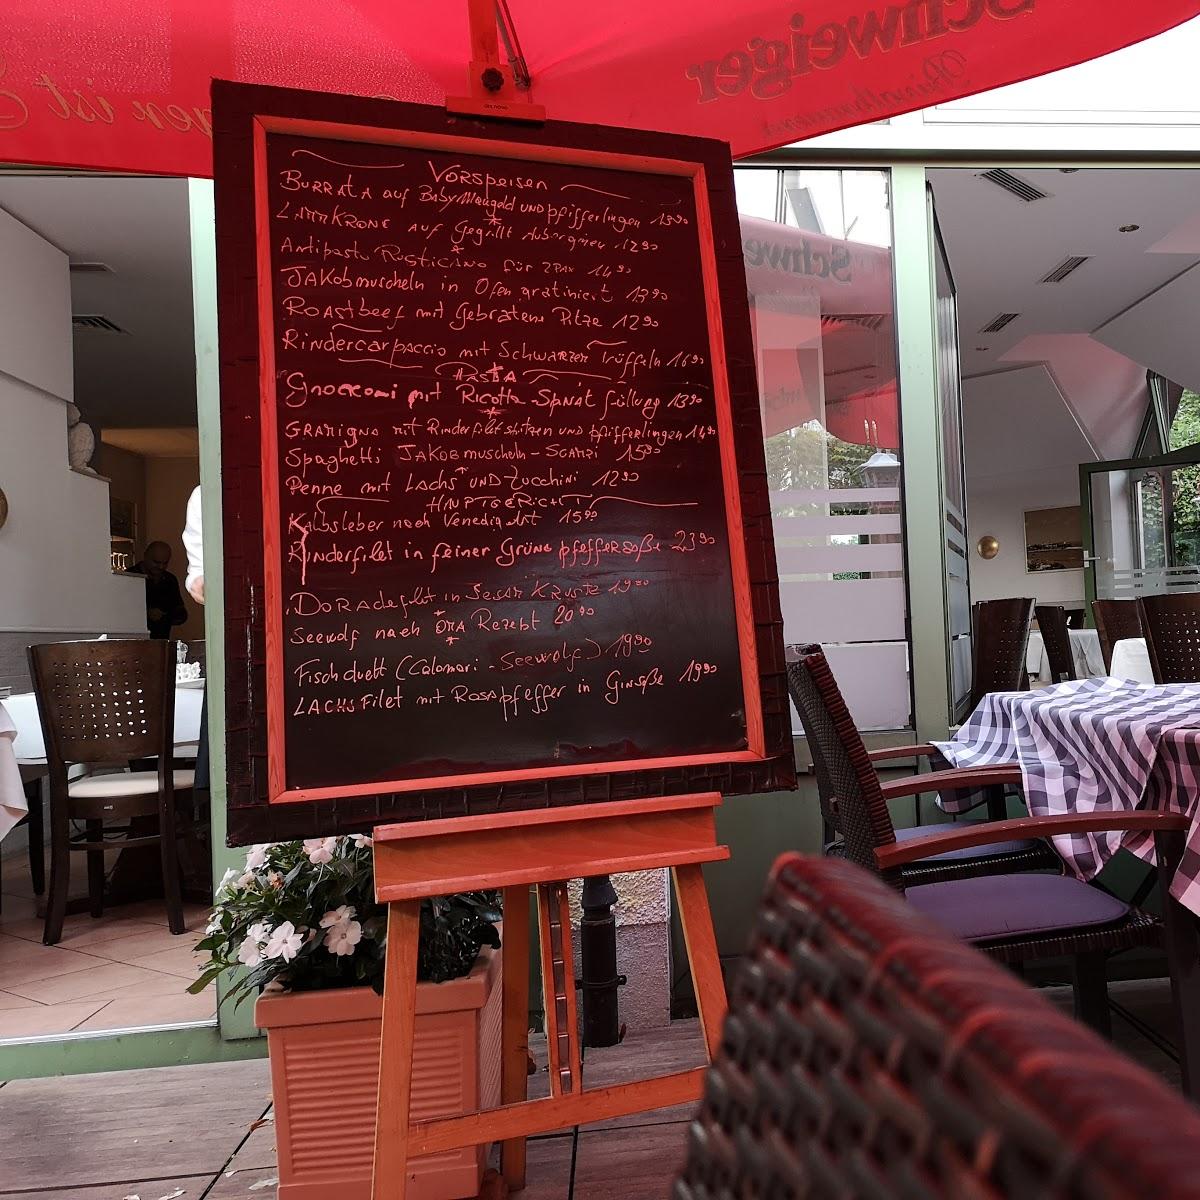 Schweiger
Vorspeisen
Burrata auf Baby Mangold und pfifferlingen 13 90
auf gegrillt 12 90
Antipasto Rusticano für 2 Pax 14 90
Jakobmuscheln in Ofen gratiniert 13 90
Roastbeef mit Gebratene Pilze 12 90
Rindercarpaccio mit Schwarzer Trüffeln 16 90
Pasta
mit Ricotta-Spinat füllung 13 90
Gramigna mit Rinderfiletspitzen und pfifferlingen 14 90
Spaghetti Jakobmuscheln - Scampi 15 90
Penne mit Lachs und Zucchini 12 90
Hauptgericht
Kalbsleber nach Venedig Art 15 90
Rinderfilet in feiner Grüne pfeffersoße 23 90
Doradefilet in Sesam Kruste 19 90
Seewolf nach Oma Rezept 20 90
Fischduett (Calamari - Seewolf) 19 90
Lachsfilet mit Rosapfeffer in Ginsoße 19 90
Schwe